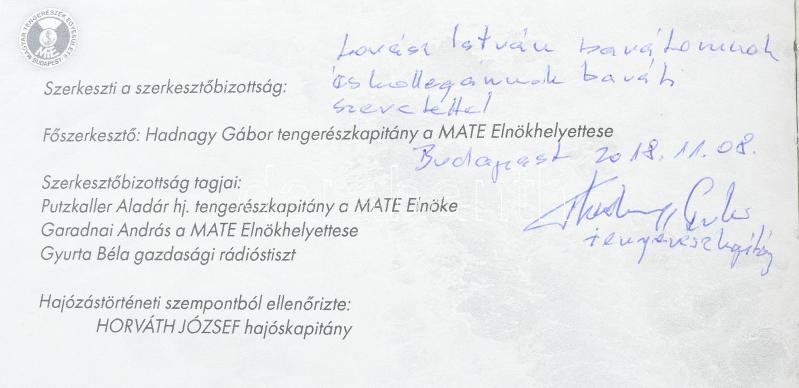 MAGYAR TENGERÉSZEK EGYESÜLETE
MATE
BUDAPEST
Lovász István barátomnak
és kollegámnak baráti
szeretettel
Szerkeszti a szerkesztőbizottság:
Főszerkesztő: Hadnagy Gábor tengerészkapitány a MATE Elnökhelyettese
Budapest 2018.11.08.
Szerkesztőbizottság tagjai:
Putzkaller Aladár hj. tengerészkapitány a MATE Elnöke
Garadnai András a MATE Elnökhelyettese
Gyurta Béla gazdasági rádióstiszt
tengerészkapitány
Hajózástörténeti szempontból ellenőrizte:
HORVÁTH JÓZSEF hajóskapitány